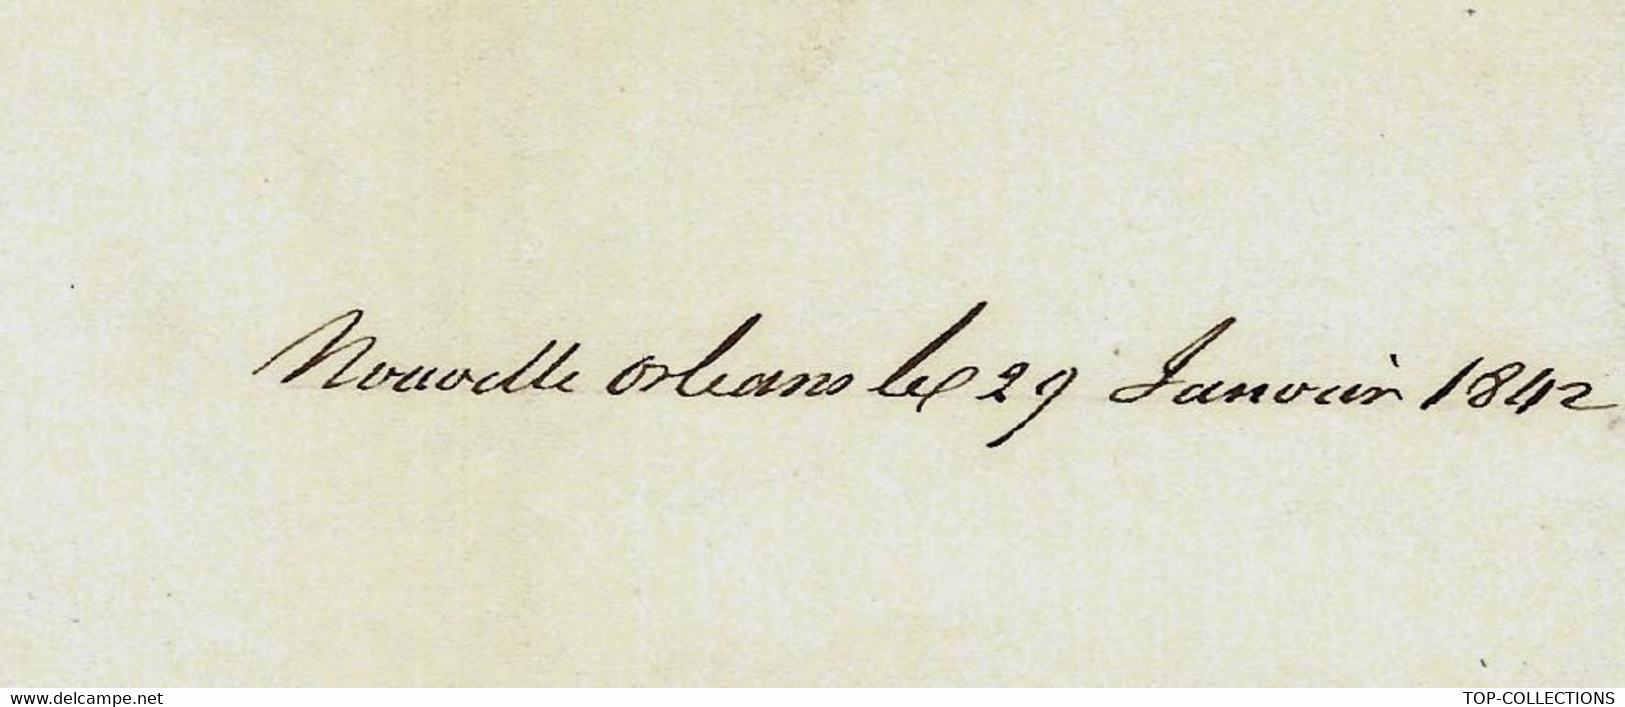 Nouvelle orleans le 29 Janvier 1842
www.delcampe.net
TOP-COLLECTIONS